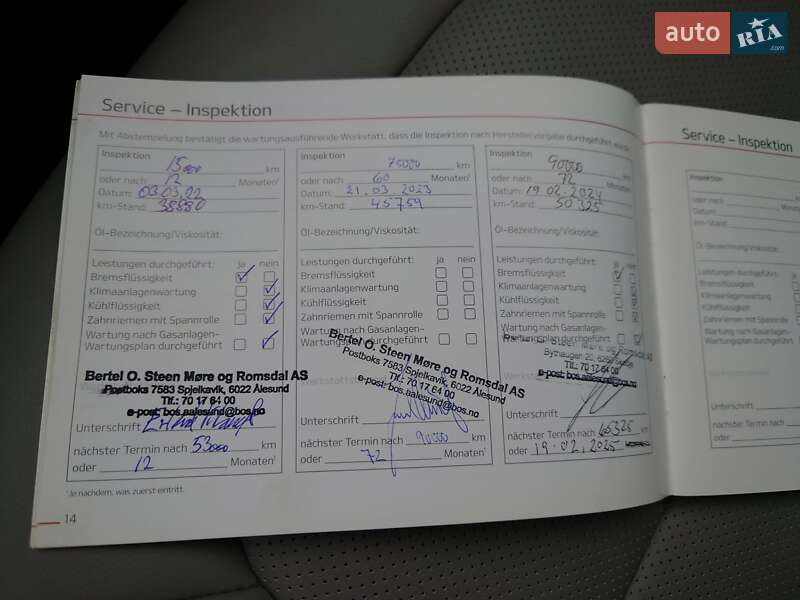 auto RIA .com
Service – Inspektion
Mit Abstempelung bestätigt die wartungsausführende Werkstatt, dass die Inspektion nach Herstellervorgabe durchgeführt wurde
Inspektion 15000 km
oder nach 12 Monaten¹
Datum: 03.03.22
km-Stand: 38880
Öl-Bezeichnung/Viskosität:
Leistungen durchgeführt: ja nein
Bremsflüssigkeit
Klimaanlagenwartung
Kühlflüssigkeit
Zahnriemen mit Spannrolle
Wartung nach Gasanlagen-
Wartungsplan durchgeführt
Bertel O. Steen Møre og Romsdal AS
Postboks 7583 Spjelkavik, 6022 Ålesund
Tlf.: 70 17 64 00
e-post: bos.aalesund@bos.no
Unterschrift
nächster Termin nach 53000 km
oder 12 Monaten¹
Inspektion 75000 km
oder nach 60 Monaten¹
Datum: 21.03.2023
km-Stand: 45759
Öl-Bezeichnung/Viskosität:
Leistungen durchgeführt: ja nein
Bremsflüssigkeit
Klimaanlagenwartung
Kühlflüssigkeit
Zahnriemen mit Spannrolle
Wartung nach Gasanlagen-
Wartungsplan durchgeführt
Bertel O. Steen Møre og Romsdal AS
Postboks 7583 Spjelkavik, 6022 Ålesund
Tlf.: 70 17 64 00
e-post: bos.aalesund@bos.no
Unterschrift
nächster Termin nach 90000 km
oder 72 Monaten¹
Inspektion 90000 km
oder nach 72 Monaten¹
Datum: 19.02.2024
km-Stand: 50325
Öl-Bezeichnung/Viskosität:
Leistungen durchgeführt: ja nein
Bremsflüssigkeit
Klimaanlagenwartung
Kühlflüssigkeit
Zahnriemen mit Spannrolle
Wartung nach Gasanlagen-
Tlf.: 70 17 64 00
e-post: bos.aalesund@bos.no
Unterschrift
nächster Termin nach 65325 km
oder 19.02.2025
¹ Je nachdem, was zuerst eintritt.
14
Service – Inspektion
Inspektion
oder nach
Datum:
km-Stand:
Öl-Bezeichnung/Viskosität:
Leistungen durchgeführt:
Bremsflüssigkeit
Klimaanlagenwartung
Kühlflüssigkeit
Zahnriemen mit Spannrolle
Wartung nach Gasanlagen-
Wartungsplan durchgeführt
Unterschrift
nächster Termin nach
oder